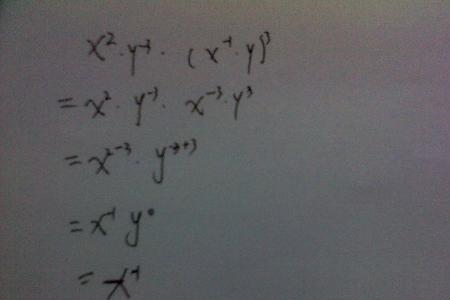 x²·y⁻³·(x⁻¹·y)³
=x²·y⁻³·x⁻³·y³
=x²⁻³·y⁻³⁺³
=x⁻¹y⁰
=x⁻¹